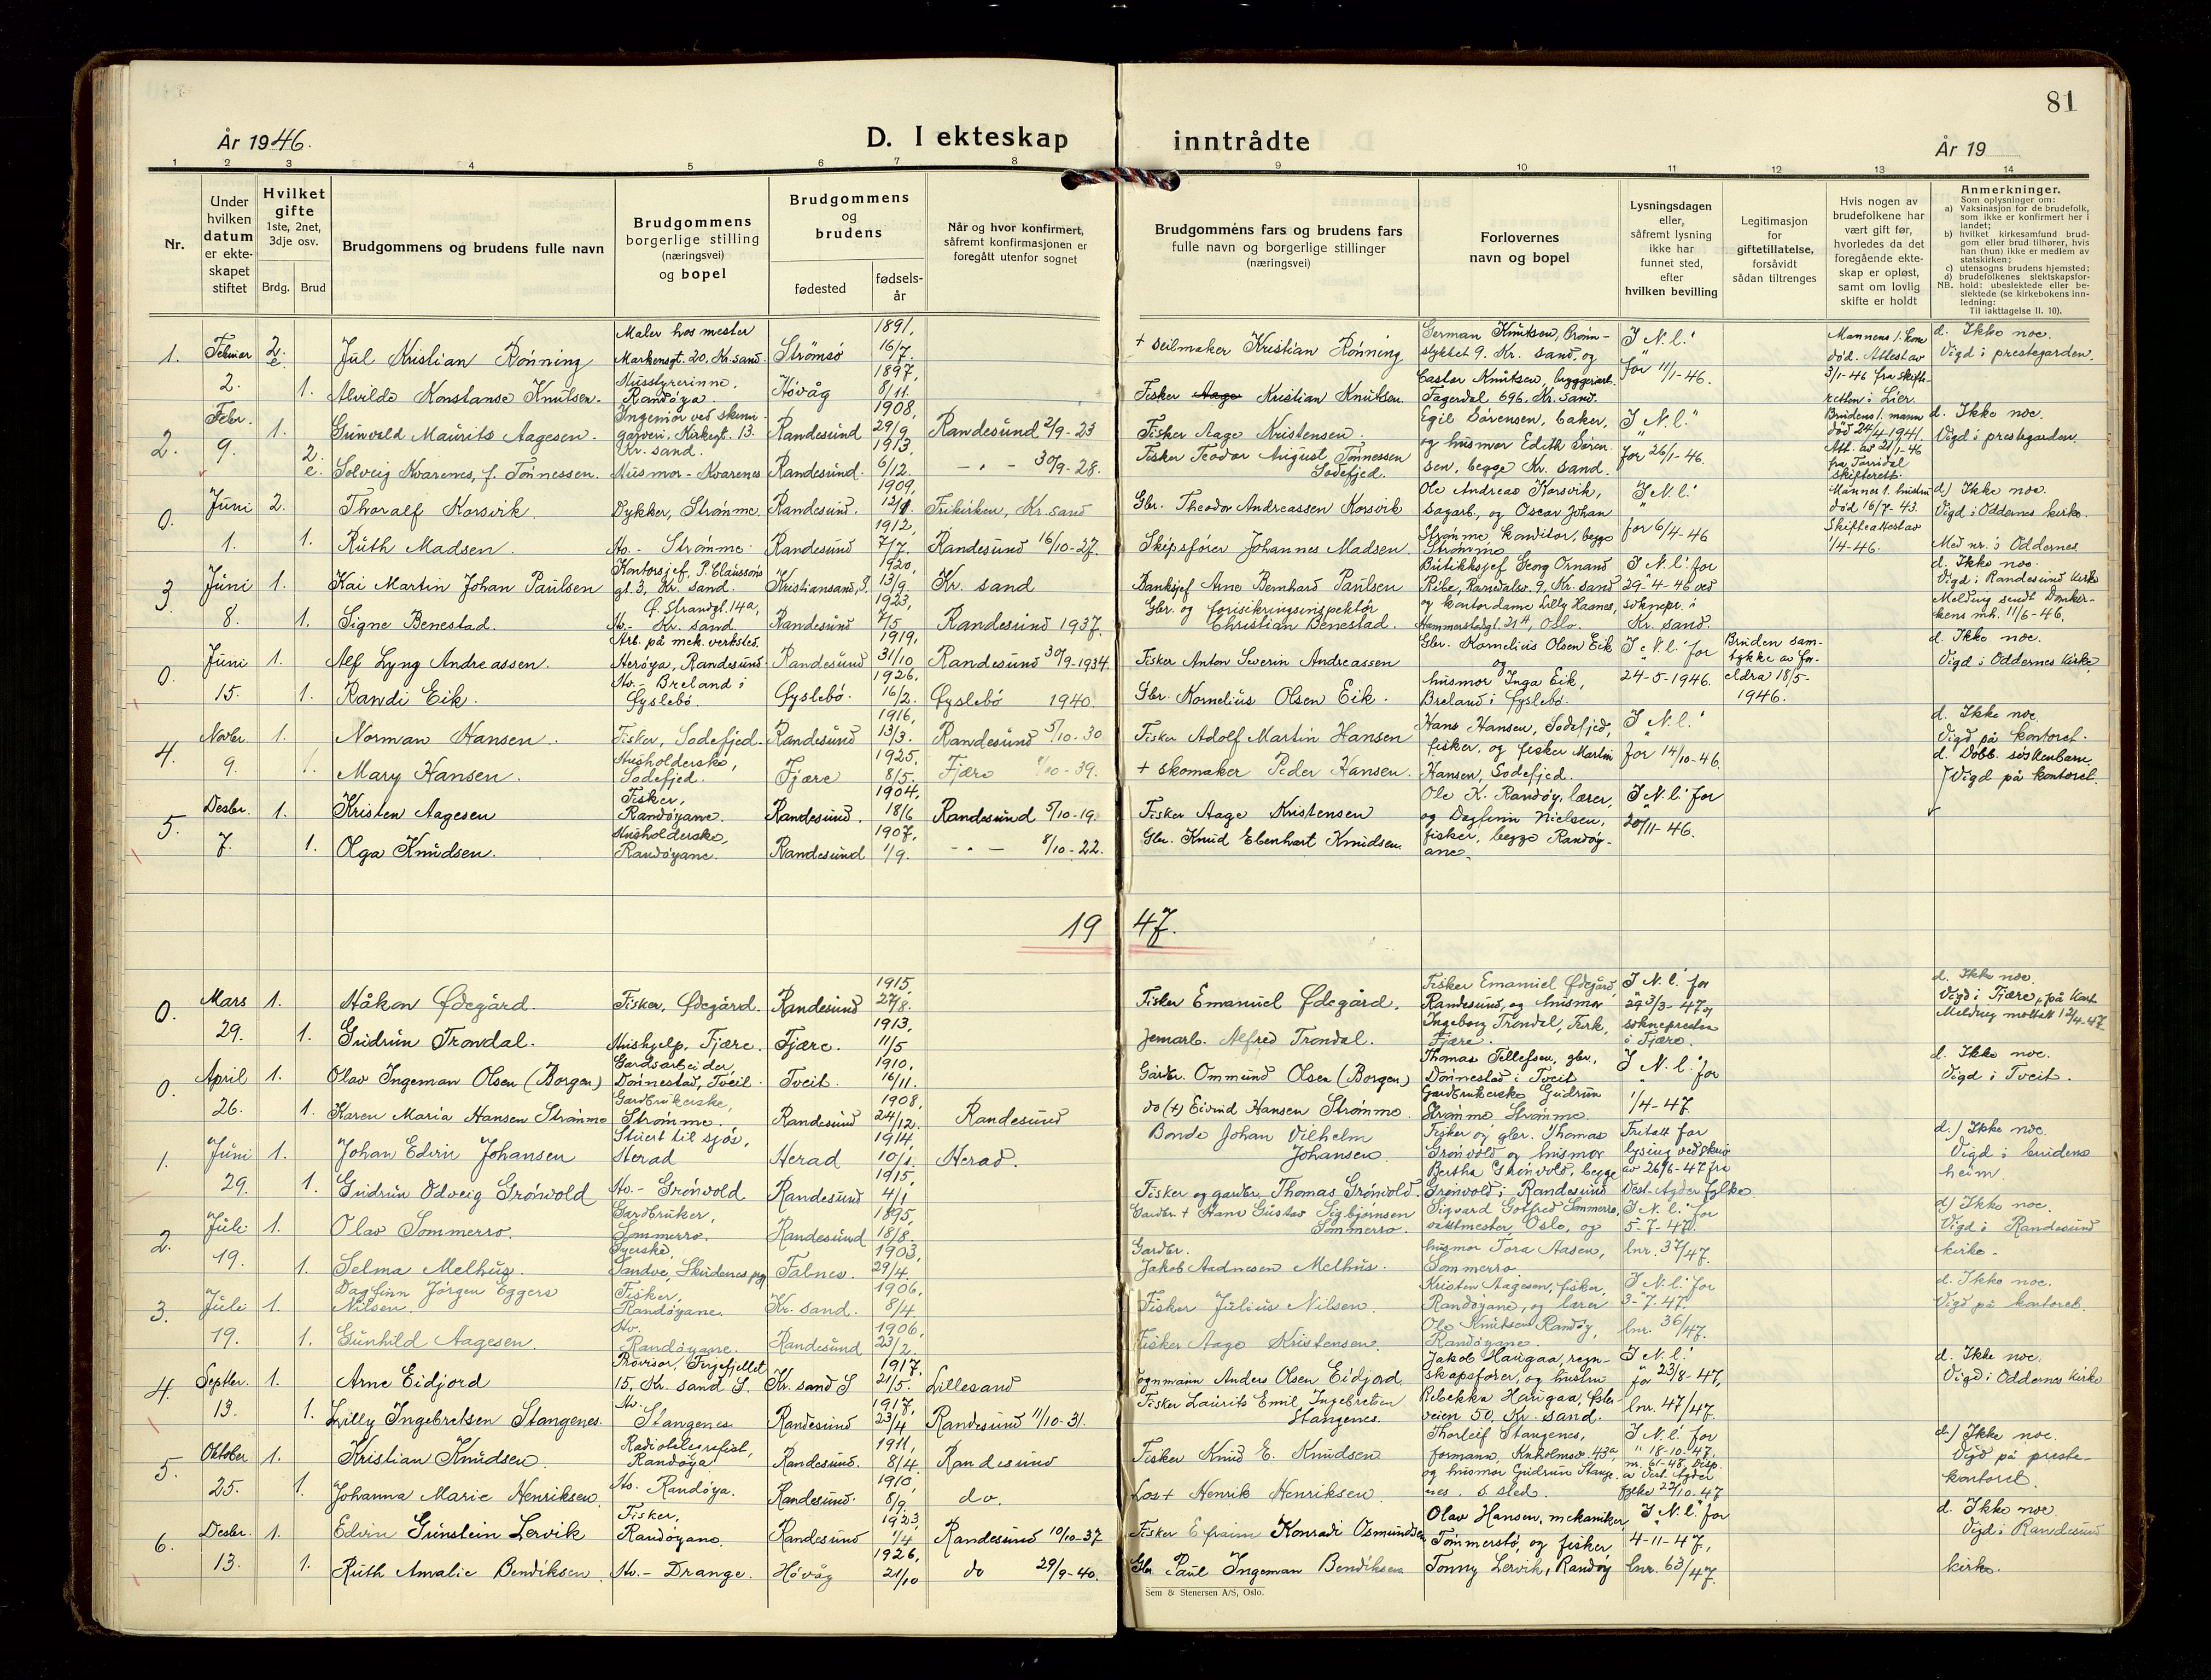 81
År 1946.
D. I ekteskap inntrådte
År 19
1 2 3 4 5 6 7 8 9 10 11 12 13 14
Nr.
Under
hvilken
datum
er ekte-
skapet
stiftet
Hvilket
gifte
1ste, 2net,
3dje osv.
Brdg. Brud
Brudgommens og brudens fulle navn
Brudgommens
borgerlige stilling
(næringsvei)
og bopel
Brudgommens
og
brudens
fødested
fødsels-
år
Når og hvor konfirmert,
såfremt konfirmasjonen er
foregått utenfor sognet
Brudgommens fars og brudens fars
fulle navn og borgerlige stillinger
(næringsvei)
Forlovernes
navn og bopel
Lysningsdagen
eller,
såfremt lysning
ikke har
funnet sted,
efter
hvilken bevilling
Legitimasjon
for
giftetillatelse,
forsåvidt
sådan tiltrenges
Hvis nogen av
brudefolkene har
vært gift før,
hvorledes da det
foregående ekte-
skap er opløst,
samt om lovlig
skifte er holdt
Anmerkninger.
Som oplysninger om:
a) Vaksinasjon for de brudefolk,
som ikke er konfirmert her i
landet;
b) hvilket kirkesamfund brud-
gom eller brud tilhører, hvis
han (hun) ikke er medlem av
statskirken;
c) utensogns brudens hjemsted;
d) brudefolkenes slektskapsfor-
NB. hold: ubeslektede eller be-
slektede (se kirkebokens inn-
ledning:
Til iakttagelse II. 10).
1. Februar 2. 2 e. 1.
Jul Kristian Rønning
Maler hos mester
Markensgt. 20, Kr.sand.
Strömsö
1891, 16/7.
+ Seilmaker Kristian Rönning
German Knutsen, Brönn-
stykket 9. Kr. Sand, og
Castor Knutsen, byggeriarb.
Fagerdal 696, Kr. Sand.
I "N.l."
for 11/1-46.
Mannens 1. kone
död. Attest av
3/1-46 fra skifte-
retten i Lier.
d. Ikke noe.
Vigd i prestegarden.
Alvilde Konstanse Knutsen.
Husstyrerinne,
Randöya.
Hövåg
1897, 8/11.
Fisker Aage Kristian Knutsen.
2. Febr. 9. 1. 2. e.
Gunvald Maurits Aagesen.
Ingeniör ved skinn-
garveri, Kirkegt. 13.
Kr. sand.
Randesund
1908, 29/9
Randesund 2/9-23
Fisker Aage Kristensen.
Egil Sörensen, baker,
og husmor Edith Sören-
sen, begge Kr. sand.
I "N.l."
for 26/1-46.
Brudens 1. mann
död 24/4-1941.
Att. av 21/1-46
fra Torridal
skifterett.
d. Ikke noe.
Vigd i prestegarden.
Solveig Kvarenes, f. Tönnessen.
Husmor - Kvarenes
Randesund.
1913, 6/12.
- " - 30/9-28.
Fisker Teodor August Tönnessen
Sodefjed.
0. Juni 1. 2. 1.
Thoralf Korsvik.
Dykker, Strömme.
Randesund.
1909, 12/1.
Frikirken, Kr.sand
Gbr. Theodor Andreassen Korsvik
Ole Andreas Korsvik,
sagarb., og Oscar Johan
Strömme, konditor, begge
Strömme
I "N.l."
for 6/4-46
Mannens 1. hustru
död 16/7-43.
Skifteattest av
1/4-46.
d) Ikke noe.
Vigd i Oddernes kirke.
Med nr. i Oddernes
Ruth Madsen.
Hv. - Strömme.
Randesund
1912, 7/7.
Randesund 16/10-27.
Skipsförer Johannes Madsen.
3. Juni 8. 1. 1.
Kai Martin Johan Paulsen
Kontorsjef, P. Claussöns
gt. 3, Kr. sand.
Kristiansand, S.
1920, 13/9.
Kr. sand
Banksjef Arne Bernhard Paulsen
Butikksjef Georg Ornand
Ribe, Randalsv. 9, Kr. sand
og kontordame Lilly Haanes,
Hammerstadgt. 21 A, Oslo.
I "N.l." for
29-4-46 ved
soknepr. i
Kr. sand.
d. Ikke noe.
Vigd i Randesund kirke
Melding sendt Domkir-
kens mh. 11/6-46.
Signe Benestad.
Ö. Strandgt. 14a,
Hv. - Kr. sand
Randesund
1923, 7/5
Randesund 1937.
Gbr. og forsikringsinspektör
Christian Benestad.
0. Juni 15. 1. 1.
Alf Lyng Andreassen.
Arb. på mek. verksted.
Heröya, Randesund.
Randesund
1919, 31/10
Randesund 30/9-1934.
Fisker Anton Severin Andreassen
Gbr. Kornelius Olsen Eik
og
husmor Inga Eik,
Breland i Öyslebö.
I "N.l." for
24-5-1946.
Bruden sam-
tykke av for-
eldra 18/5-
1946.
d. Ikke noe.
Vigd i Oddernes kirke.
Randi Eik.
Hv. - Breland i
Öyslebö.
Öyslebö.
1926, 16/2.
Öyslebö 1940.
Gbr. Kornelius Olsen Eik.
4. Novbr. 9. 1. 1.
Norman Hansen.
Fisker, Sodefjed.
Randesund
1916, 13/3.
Randesund 5/10-30
Fisker Adolf Martin Hansen
Hans Hansen, Sodefjed,
fisker, og fisker Martin
Hansen, Sodefjed.
I "N.l."
for 14/10-46.
d. Ikke noe
Vigd på kontoret.
d. Dobb. söskenbarn.
Vigd på kontoret
Mary Hansen.
Husholderske,
Sodefjed.
Fjære
1925, 8/5.
Fjære /10-39.
+ skomaker Peder Hansen.
5. Desbr. 7. 1. 1.
Kristen Aagesen
Fisker,
Randöyane.
Randesund.
1904, 18/6
Randesund 5/10-19.
Fisker Aage Kristensen
Ole K. Randöy, lærer,
og Dagfinn Nielsen,
fisker, begge Randöy-
ane.
I "N.l." for
20/11-46.
Olga Knudsen.
Husholderske,
Randöyane.
Randesund
1907, 1/9.
- " - 8/10-22.
Gbr. Knud Ebenhart Knudsen.
1947.
0. Mars 29. 1. 1.
Håkon Ødegård.
Fisker, Ødegård.
Randesund
1915, 27/8.
Fisker Emanuel Ødegård.
Fisker Emanuel Ødegård,
Randesund, og husmor
Ingeborg Trondal, Ferk.,
Fjære.
I "N.l." for
29/3-47 v
sokneprester
i Fjære.
d. Ikke noe.
Vigd i Fjære, på kont
Melding mottatt 12/4-47
Gudrun Trondal.
Hushjelp, Fjære.
Fjære.
1913, 11/5
Jernarb. Alfred Trondal.
0. April 26. 1. 1.
Olav Ingeman Olsen (Borgen)
Gardsarbeider,
Dönnestad, Tveit.
Tveit.
1910, 16/11.
Gardbr. Ommund Olsen (Borgen)
Thomas Tellefsen, gbr.,
Dönnestad i Tveit
Gardbrukerske Gudrun
Strömme, Strömme.
I "N.l." for
1/4-47
d. Ikke noe.
Vigd i Tveit.
Karen Maria Hansen Strömme
Gardbrukerske,
Strömme.
Randesund
1908, 24/12.
Randesund
do (+) Eivind Hansen Strömme.
1. Juni 29. 1. 1.
Johan Edvin Johansen
Stuert til sjös,
Herad
Herad
1914, 10/1.
Herad.
Bonde Johan Vilhelm
Johansen
Fisker og gbr. Thomas
Grönvold og husmor
Bertha Grönvold, begge
Grönvold i Randesund
Fritatt for
lysing ved skriv
av 26/6-47 fra
Vest-Agder fylke.
d.) Ikke noe
Vigd i brudens
heim.
Gudrun Odveig Grönvold
Hv. - Grönvold
Randesund
1915, 4/1
Fisker og gardbr. Thomas Grönvold.
2. Juli 19. 1. 1.
Olav Sommerro.
Gardbruker,
Sommerro.
Randesund
1895, 18/8.
Gardbr. + Hans Gustav Sigbjörnsen
Sommerro.
Sigvard Gotfred Sommerro,
vaktmester, Oslo, og
husmor Tora Aasen,
Sommerro
I "N.l." for
5-7-47.
lnr. 37/47.
d) Ikke noe.
Vigd i Randesund
kirke.
Selma Melhus.
Syerske,
Sandve, Skudenes pgj.
Falnes.
1903, 29/4.
Gardbr.
Jakob Aadnesen Melhus.
3. Juli 19. 1. 1.
Dagfinn Jörgen Eggers
Nilsen.
Fisker,
Randöyane.
Kr. sand.
1906, 8/4
Fisker Julius Nilsen.
Kristen Aagesen, fisker,
Randöyane, og lærer
Ole Knutsen Randöy,
Randöyane.
I "N.l." for
3-7-47.
lnr. 36/47.
d. Ikke noe.
Vigd på kontoret.
Gunhild Aagesen.
Hv.
Randöyane.
Randesund
1906, 23/2.
Fisker Aage Kristensen.
4. Septbr. 13. 1. 1.
Arne Eidjord
Provisor, Fugefjellet
15, Kr. sand S.
Kr. sand S
1917, 21/5.
Lillesand
Tognmann Anders Olsen Eidjord
Jakob Haugaa, regn-
skapsförer, og hustru
Rebekka Haugaa,
veien 50, Kr. sand.
I "N.l."
for 23/8-47,
lnr. 47/47.
d. Ikke noe.
Vigd i Oddernes kirke
Lilly Ingebretsen Stangenes.
Hv.
Stangenes
Randesund
1917, 23/4
Randesund 11/10-31.
Fisker Laurits Emil Ingebretsen
Stangenes.
5. Oktober 25. 1. 1.
Kristian Knudsen.
Radiotelegrafist,
Randöya
Randesund.
1911, 8/4.
Randesund
Fisker Knud E. Knudsen
Thorleif Stangenes,
formann, Kuholmsv. 43a,
og husmor Gudrun Stange-
nes. s. sted.
I "N.l." for
18-10-47,
nr. 61-48. Disp.
a Vest. Agder
fylke 22/10-47
d.) Ikke noe.
Vigd på preste-
kontoret.
Johanna Marie Henriksen.
Hv. Randöya.
Randesund.
1910, 8/9.
do.
Los + Henrik Henriksen.
6. Desbr. 13. 1. 1.
Edvin Gunstein Lervik
Fisker,
Randöyane.
Randesund
1923, 1/4
Randesund 10/10-37
Fisker Efraim Konradi Osmundsen
Olav Hansen, mekaniker,
Tömmerstö, og fisker
Tonny Lervik, Randöy
I "N.l." for
4-11-47,
lnr. 63/47.
d. Ikke noe
Vigd i Randesund
kirke.
Ruth Amalie Bendiksen.
Hv. - Drange.
Hövåg
1926, 21/10
do 29/9-40.
Gbr. Paul Ingeman Bendiksen
Sem & Stenersen A/S, Oslo.